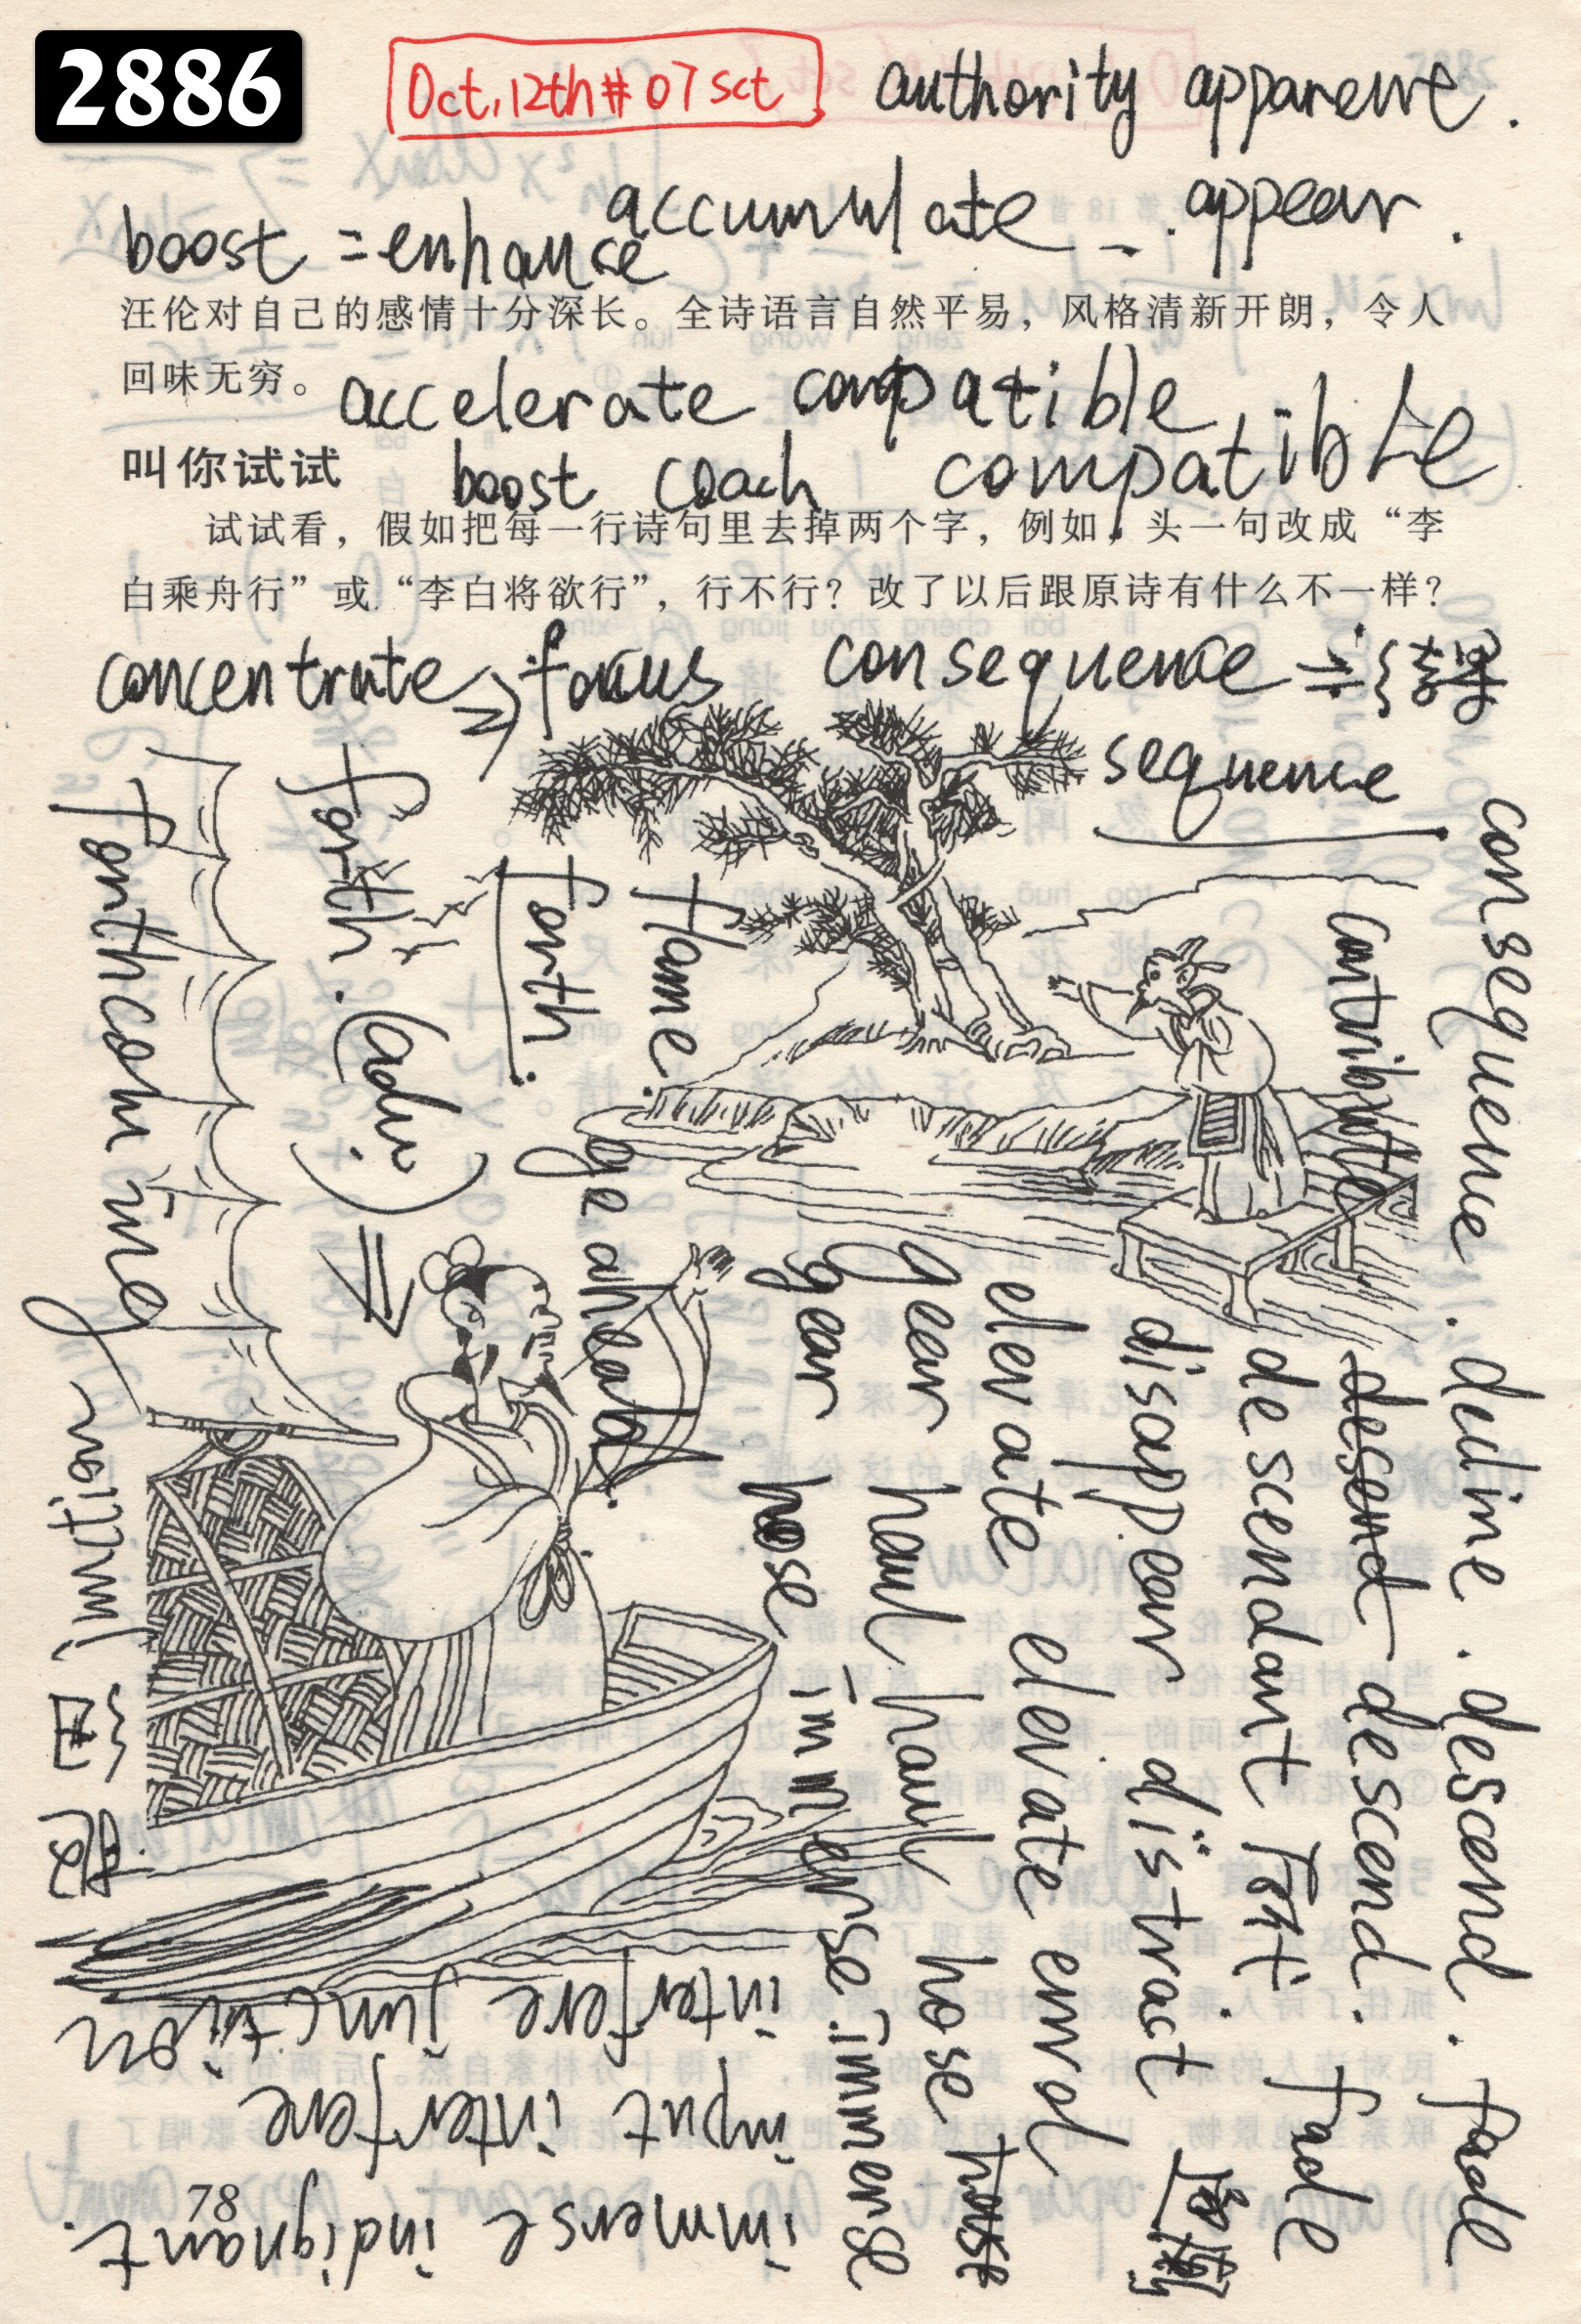 2886
Oct, 12th # 07 sct
authority apparent.
accumulate appear.
boost = enhance
汪伦对自己的感情十分深长。全诗语言自然平易，风格清新开朗，令人
回味无穷。
accelerate compatible
叫你试试
boost coach compatible
试试看，假如把每一行诗句里去掉两个字，例如，头一句改成“李
白乘舟行”或“李白将欲行”，行不行？改了以后跟原诗有什么不一样？
concentrate → focus consequence
sequence
consequence. decline. descend. fade
contribute descend descend. fade
descendant
disappear distract
elevate elevate elevate enrol
gear haul haul hose hose
gear hose immerse. immense
flame. ge ahead
forth.
forth. (adv) ⇒
forthcoming
initiar
interfere junction
input interfere
immense indignant.
78